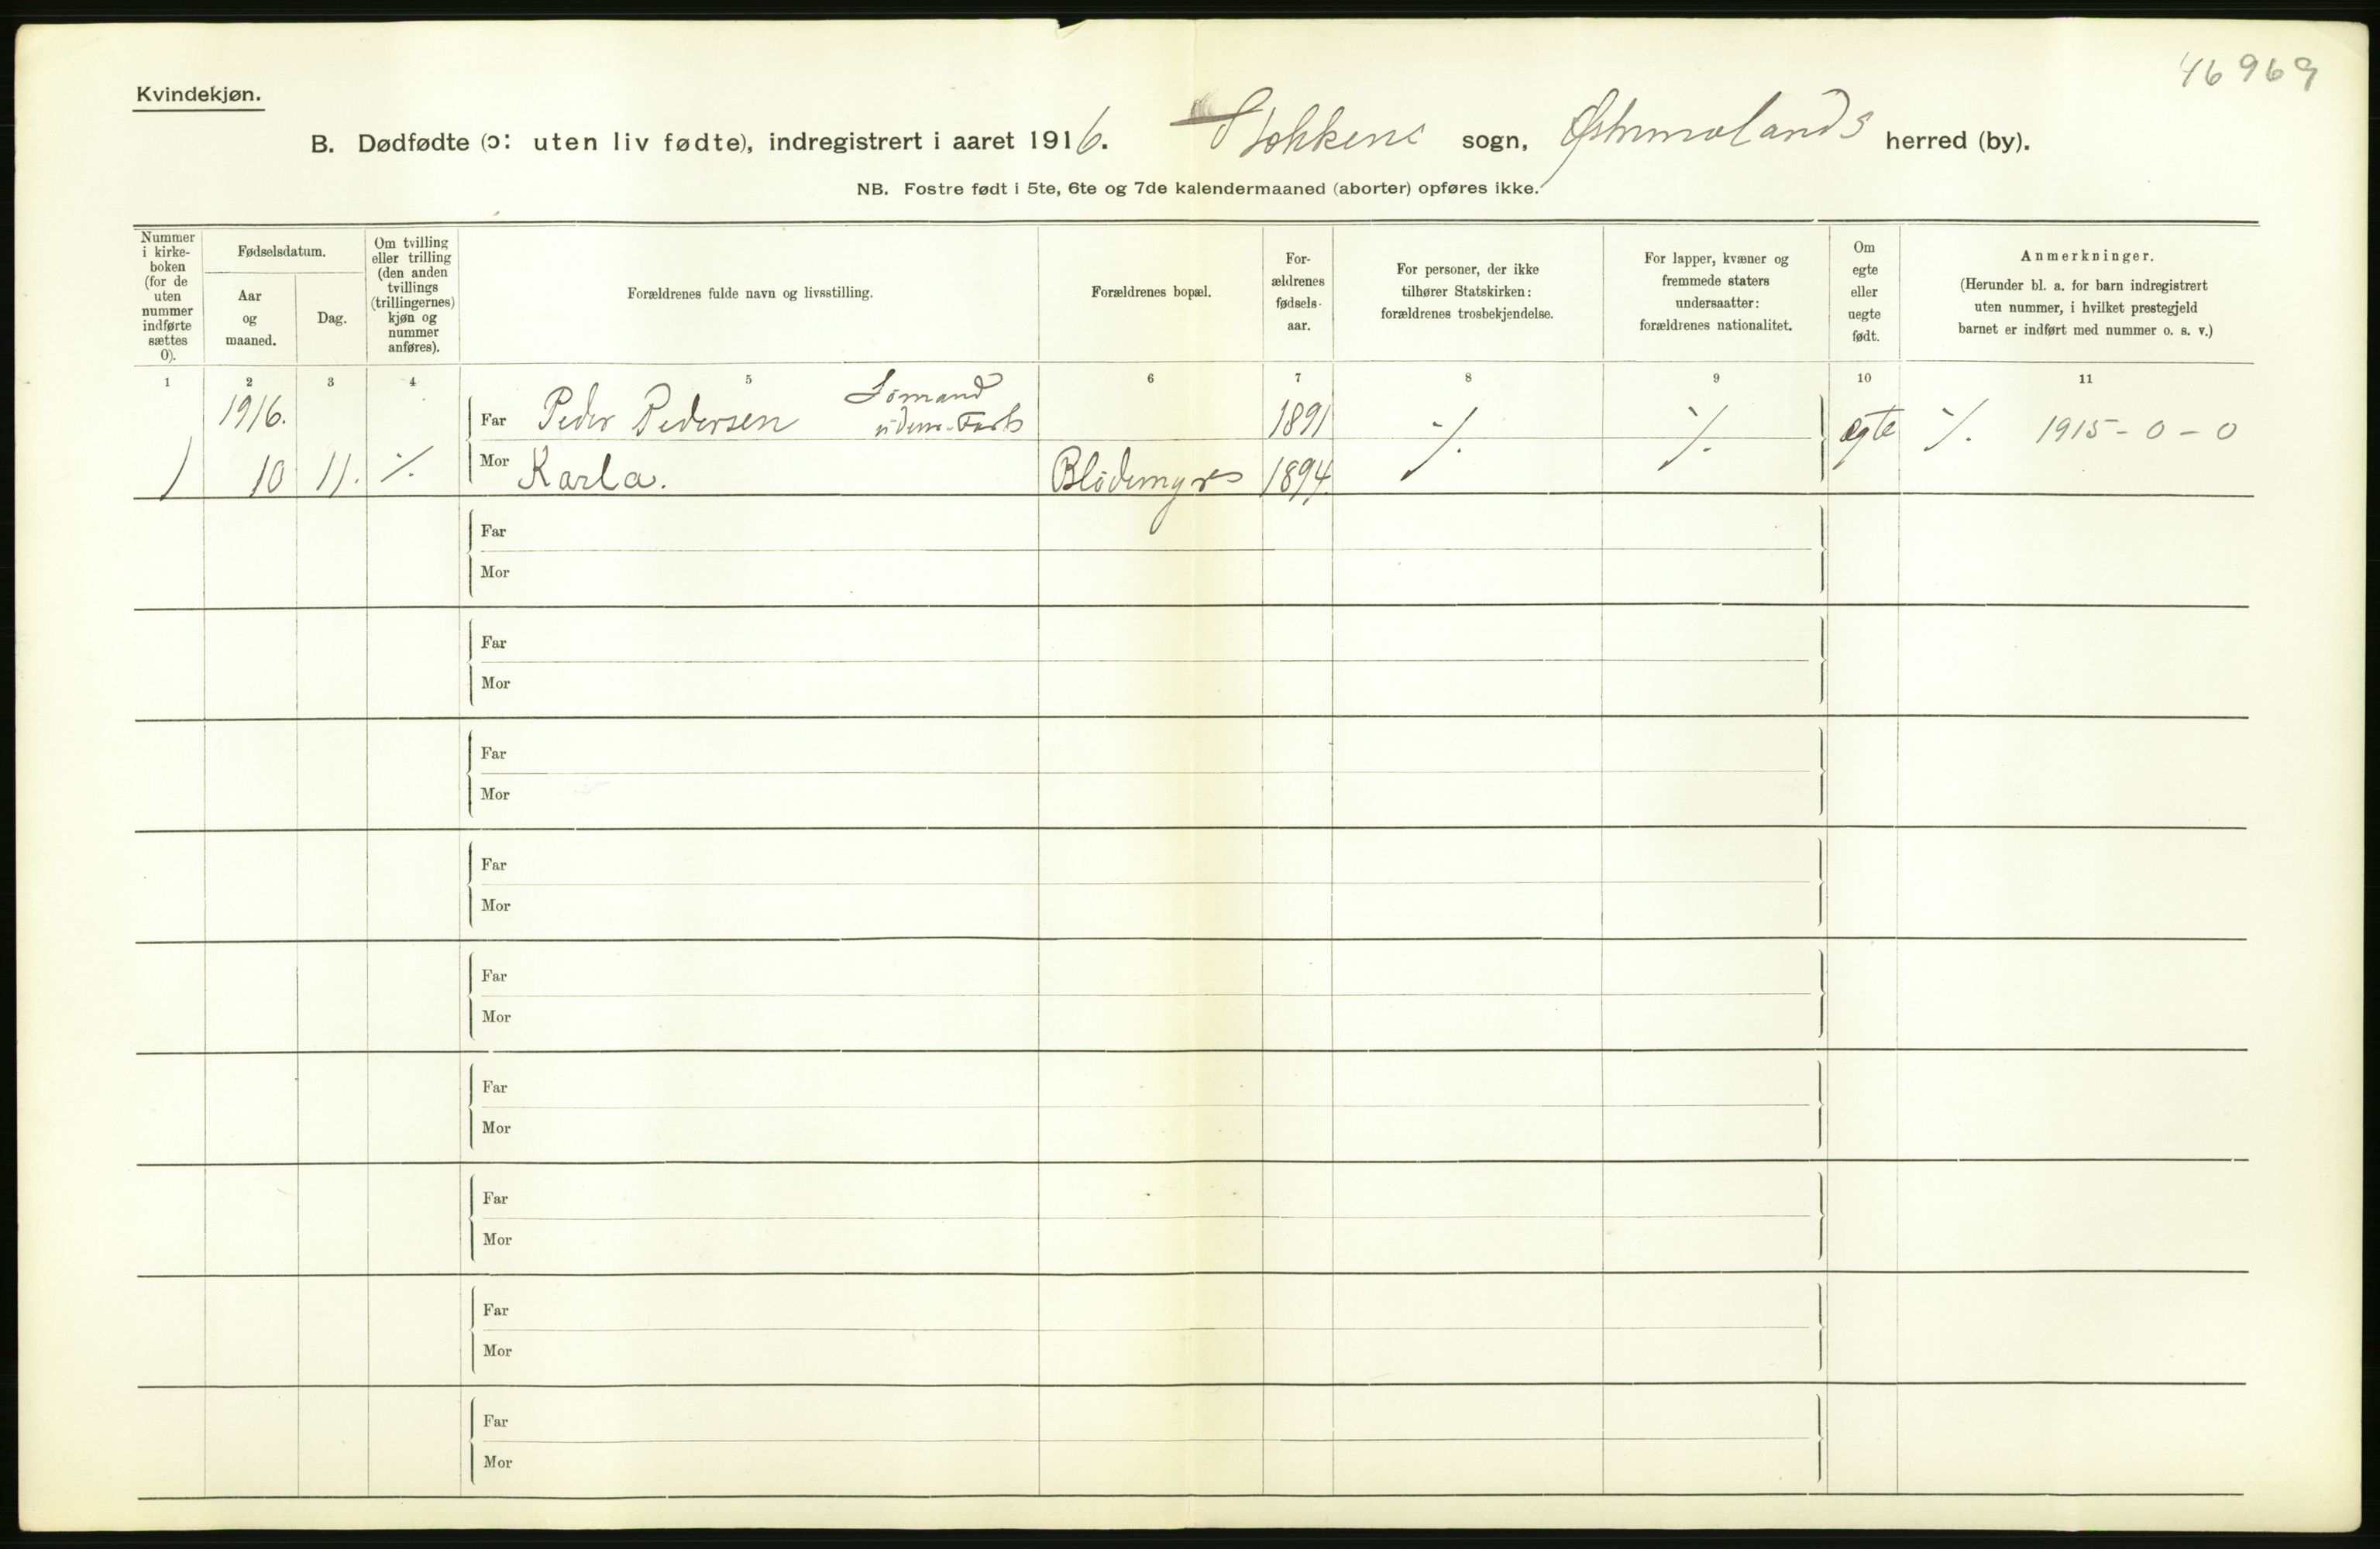 46969
Kvindekjøn.
B. Dødfødte (ɔ: uten liv fødte), indregistrert i aaret 1916. Stokkens sogn, Østremolands herred (by).
NB. Fostre født i 5te, 6te og 7de kalendermaaned (aborter) opføres ikke.
Nummer
i kirke-
boken
(for de
uten
nummer
indførte
sættes
0).
Fødselsdatum.
Aar
og
maaned.
Dag.
Om tvilling
eller trilling
(den anden
tvillings
(trillingernes)
kjøn og
nummer
anføres).
Forældrenes fulde navn og livsstilling.
Forældrenes bopæl.
For-
ældrenes
fødsels-
aar.
For personer, der ikke
tilhører Statskirken:
forældrenes trosbekjendelse.
For lapper, kvæner og
fremmede staters
undersaatter:
forældrenes nationalitet.
Om
egte
eller
uegte
født.
Anmerkninger.
(Herunder bl. a. for barn indregistrert
uten nummer, i hvilket prestegjeld
barnet er indført med nummer o. s. v.)
1 2 3 4 5 6 7 8 9 10 11
1916. Far Peder Pedersen Sømand 1891 ⁒ ⁒ egte ⁒ 1915 - 0 - 0
udenr. Fart
1 10 11. ⁒ Mor Karla. Blødemyres 1894
Far
Mor
Far
Mor
Far
Mor
Far
Mor
Far
Mor
Far
Mor
Far
Mor
Far
Mor
Far
Mor